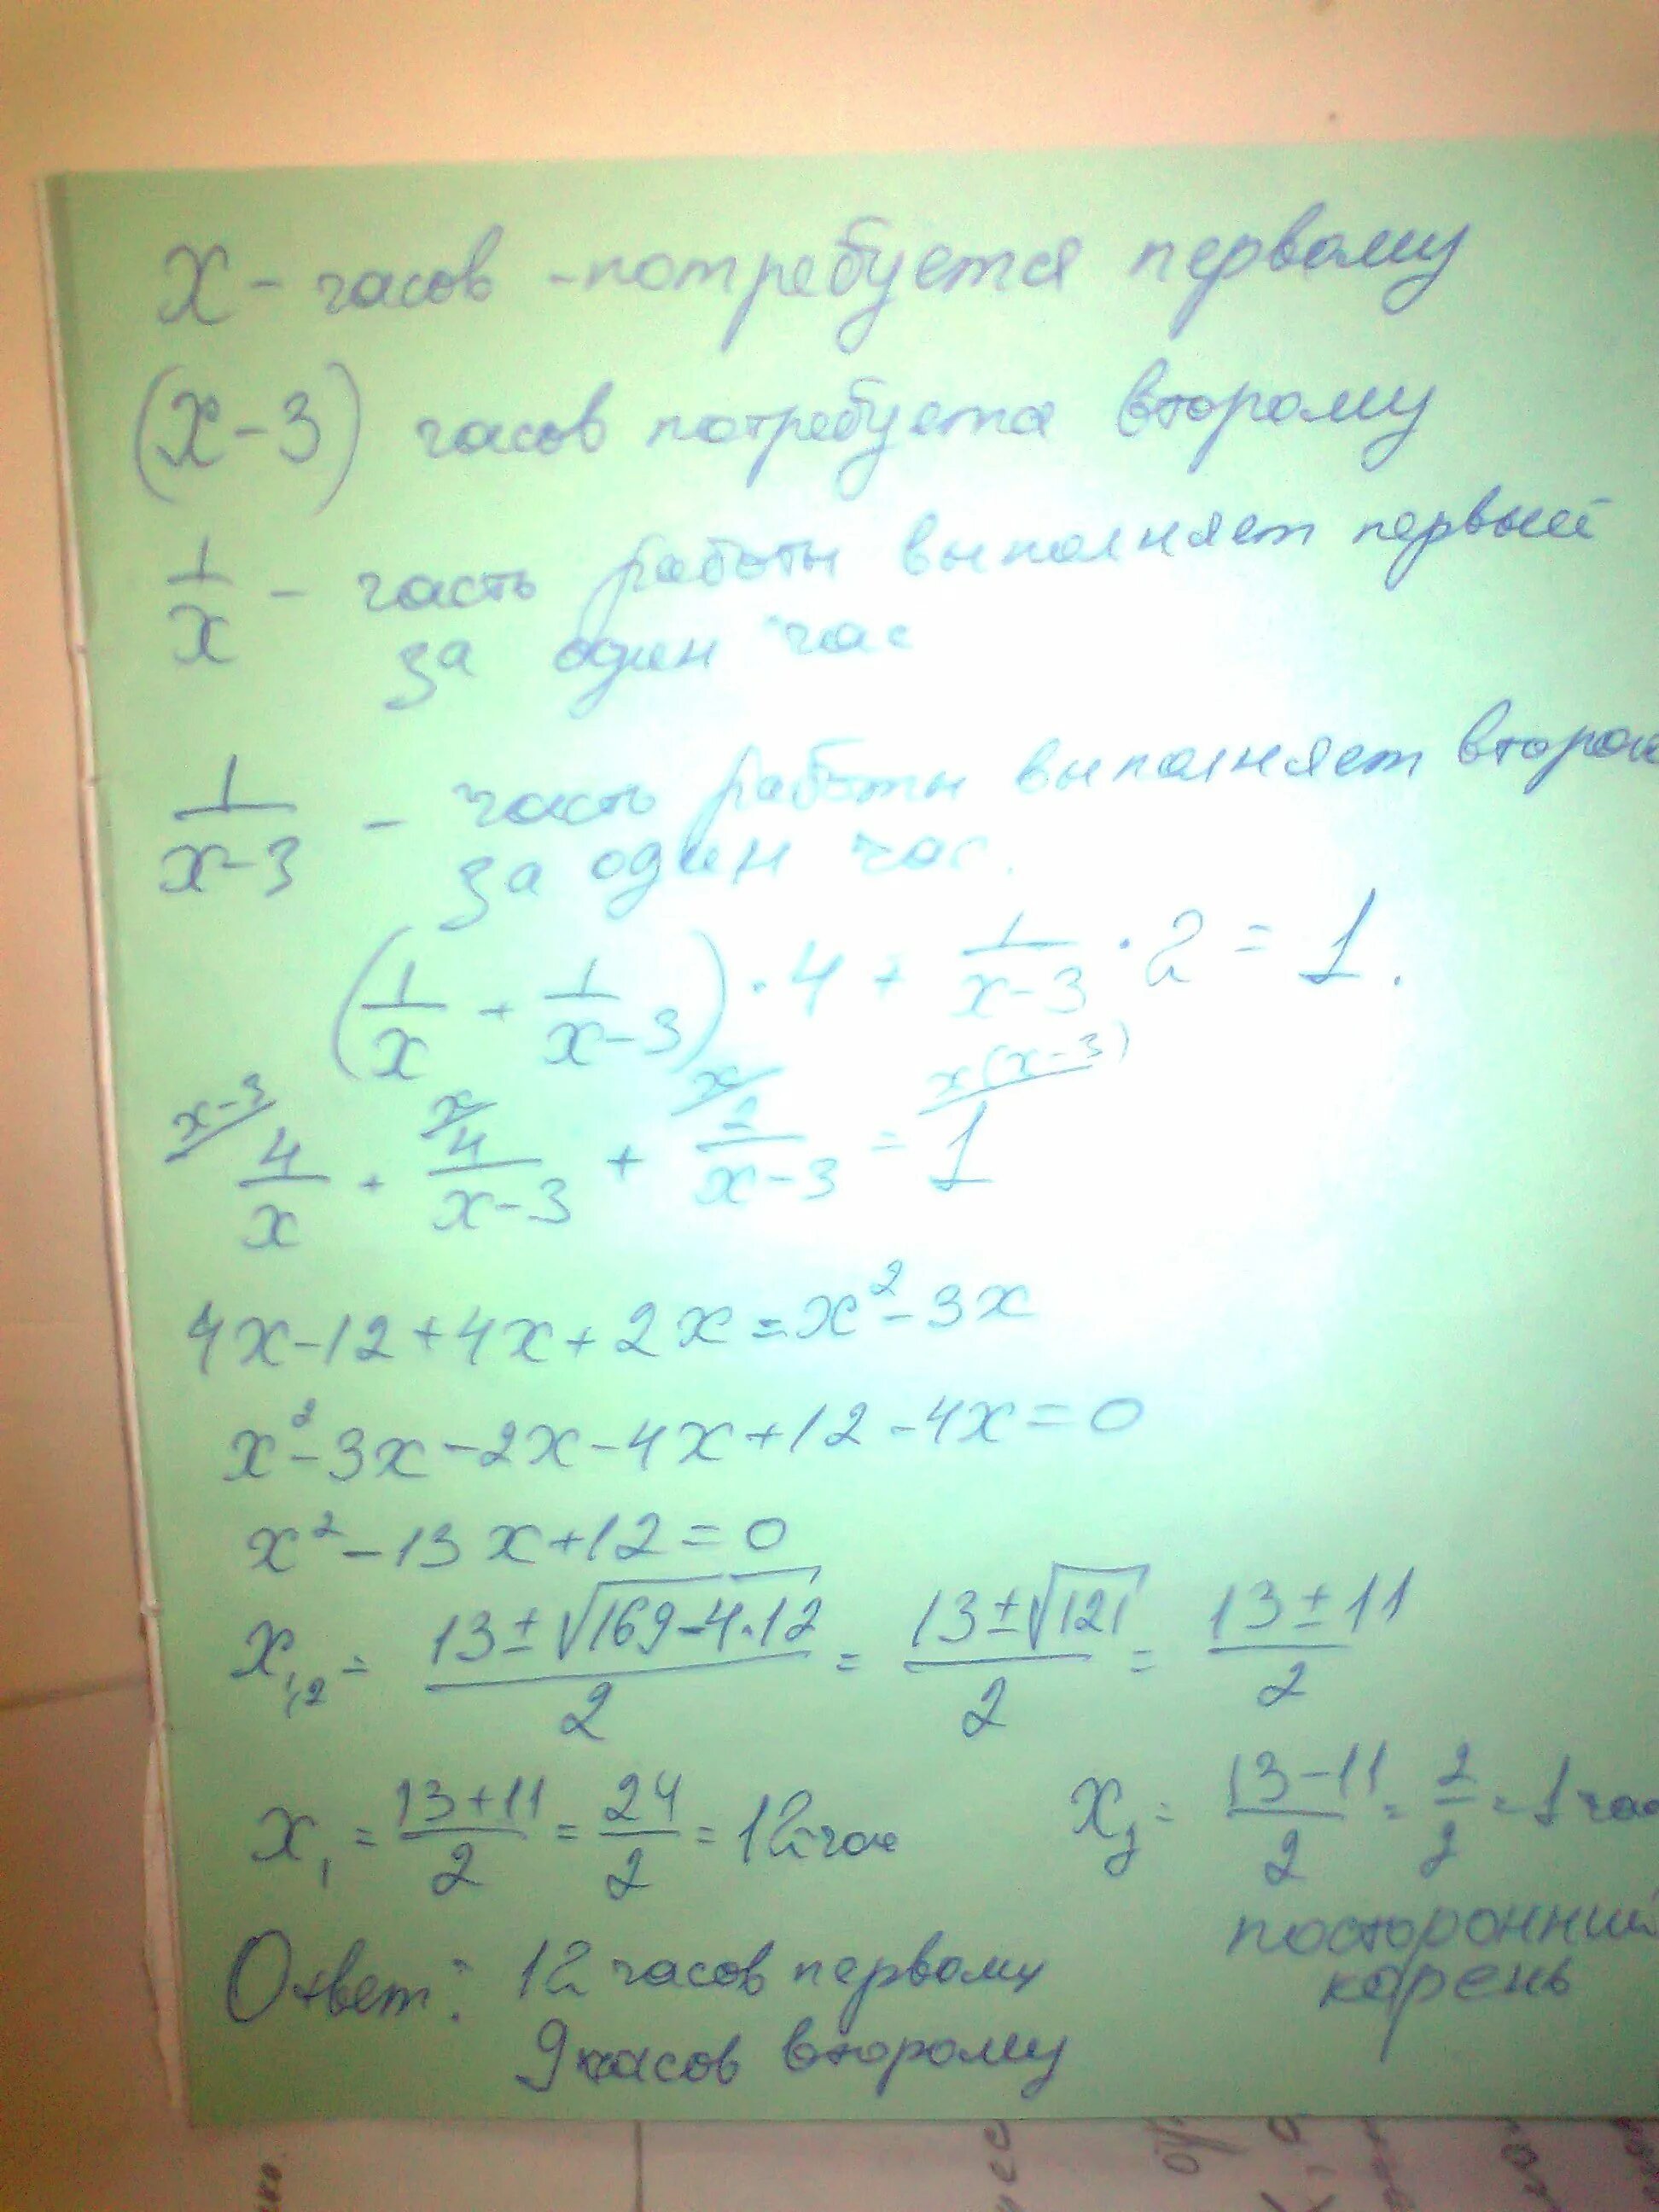 x - часов - потребуется первому
(x-3) часов потребуется второму
1/x - часть работы выполняет первый
за один час
1/(x-3) - часть работы выполняет второй
за один час.
(1/x + 1/(x-3)) · 4 + 1/(x-3) · 2 = 1.
x-3/ x/ x/ x(x-3)/
4/x + 4/(x-3) + 2/(x-3) = 1
4x-12+4x+2x=x²-3x
x²-3x-2x-4x+12-4x=0
x²-13x+12=0
x₁,₂ = (13±√(169-4·12))/2 = (13±√121)/2 = (13±11)/2
x₁ = (13+11)/2 = 24/2 = 12 час x₂ = (13-11)/2 = 2/2 = 1 час
посторонний
корень
Ответ: 12 часов первому
9 часов второму